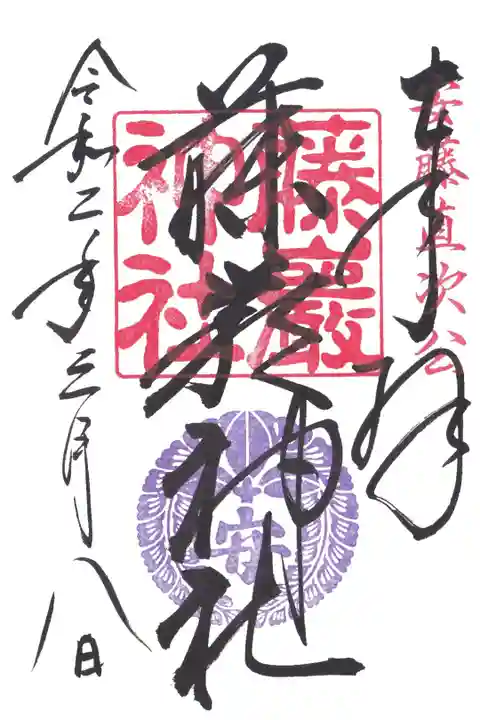 奉拝
安藤直次公
藤巖神社
藤巖神社
安
令和二年三月八日